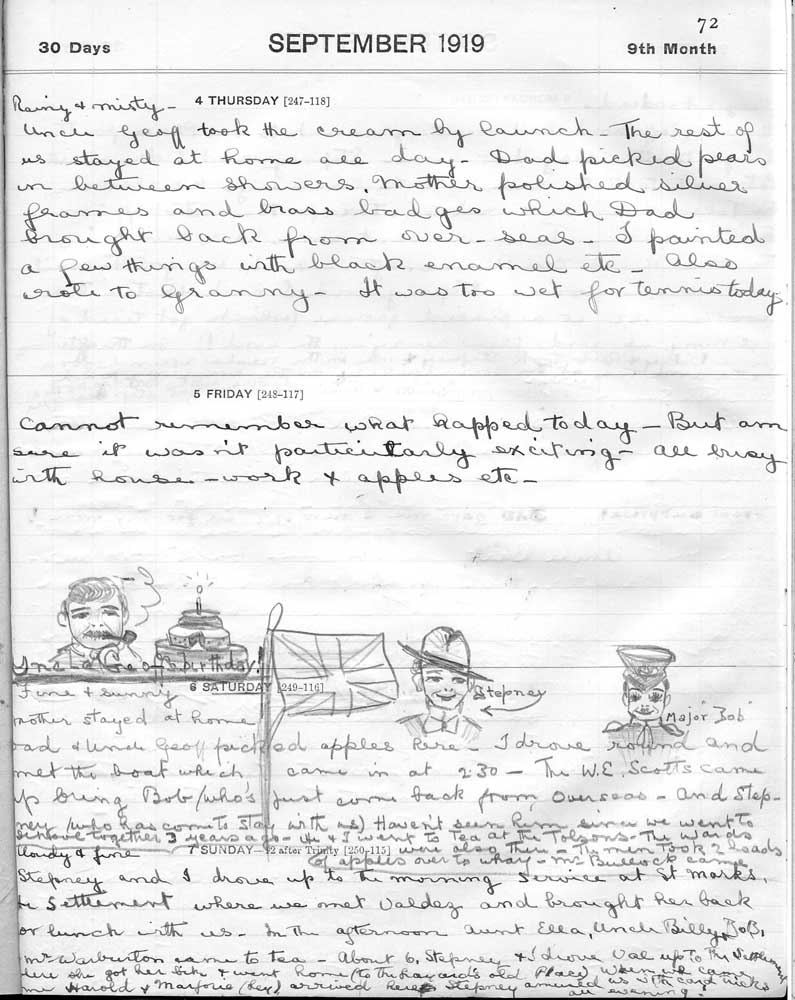 72
30 Days
SEPTEMBER 1919
9th Month
Rainy & misty - 4 THURSDAY [247-118]
Uncle Geoff took the cream by launch - The rest of
us stayed at home all day - Dad picked pears
in between showers. Mother polished silver
frames and brass badges which Dad
brought back from over-seas - I painted
a few things with black enamel etc - Also
wrote to Granny - It was too wet for tennis today.
5 FRIDAY [248-117]
Cannot remember what happed today - But am
sure it wasn't particularly exciting - all busy
with house-work & apples etc -
Uncle Geoff's birthday!
6 SATURDAY [249-116]
Stepney
Major "Bob"
Fine & sunny
Mother stayed at home
Dad & Uncle Geoff picked apples here - I drove round and
met the boat which came in at 2.30 - The W.E. Scotts came
up bring Bob (who's just come back from Overseas - and Step-
ney (who has come to stay with us) Haven't seen him since we went to
together 3 years ago - He & I went to Tea at the Tolsons - The Wards
were also there - The men took 2 loads
of apples over to wharf - Mr Bullock came
Cloudy & fine
7 SUNDAY - 12 after Trinity [250-115]
Stepney and I drove up to the morning service at St Marks,
Settlement where we met Valdez and brought her back
for lunch with us - In the afternoon Aunt Ella, Uncle Billy, Bob,
Mr Warburton came to tea - About 6, Stepney & I drove Val up to the Settlement
where she got her & went home (to the Havards old Place) When we came
home Harold & Marjorie (Ley) arrived here Stepney amused us with card tricks
all evening!